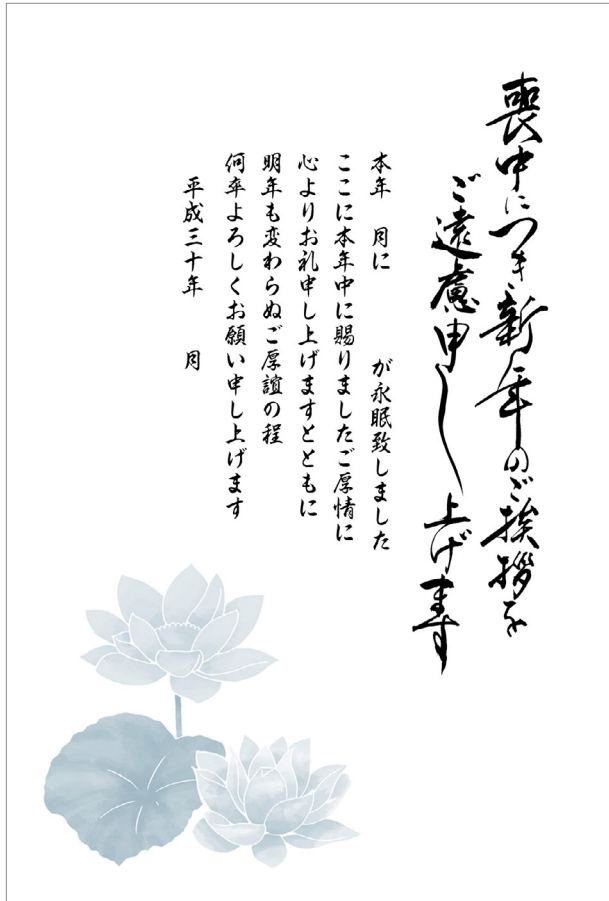 喪中につき新年のご挨拶を
ご遠慮申し上げます
本年　月に　　　が永眠致しました
ここに本年中に賜りましたご厚情に
心よりお礼申し上げますとともに
明年も変わらぬご厚誼の程
何卒よろしくお願い申し上げます
平成三十年　　月